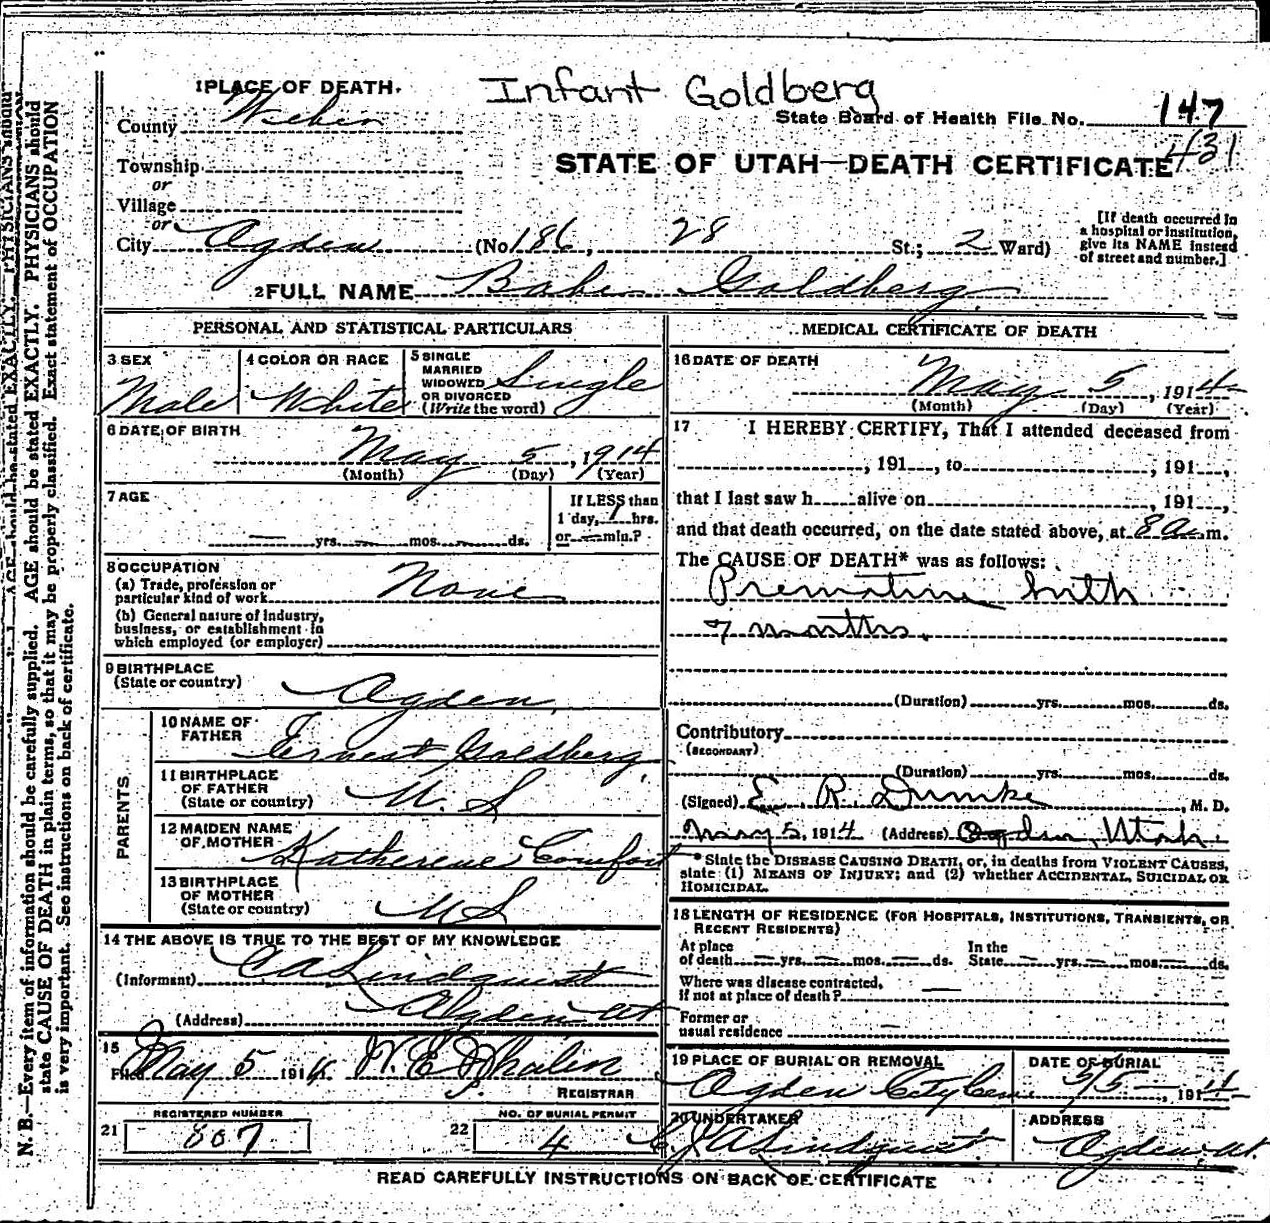 Infant Goldberg
1 PLACE OF DEATH.
County Weber
State Board of Health File No. 147
431
Township
or
Village
or
STATE OF UTAH—DEATH CERTIFICATE
City Ogden (No. 186, 28 St.; 2 Ward)
[If death occurred in
a hospital or institution,
give its NAME instead
of street and number.]
2 FULL NAME Babe Goldberg
PERSONAL AND STATISTICAL PARTICULARS
3 SEX
Male
4 COLOR OR RACE
White
5 SINGLE
MARRIED
WIDOWED
OR DIVORCED
(Write the word)
Single
6 DATE OF BIRTH
May 5, 1914
(Month) (Day) (Year)
7 AGE
— yrs. — mos. — ds.
If LESS than
1 day, 1 hrs.
or — min.?
8 OCCUPATION
(a) Trade, profession or
particular kind of work None
(b) General nature of industry,
business, or establishment in
which employed (or employer)
9 BIRTHPLACE
(State or country) Ogden,
PARENTS
10 NAME OF
FATHER Ernest Goldberg
11 BIRTHPLACE
OF FATHER
(State or country) U. S
12 MAIDEN NAME
OF MOTHER Katherene Comfort
13 BIRTHPLACE
OF MOTHER
(State or country) U S
14 THE ABOVE IS TRUE TO THE BEST OF MY KNOWLEDGE
(Informant) C A Lindquist
(Address) Ogden Ut
15
Filed May 5 1914 W. E. Whalen
REGISTRAR
REGISTERED NUMBER
21 807
NO. OF BURIAL PERMIT
22 4
MEDICAL CERTIFICATE OF DEATH
16 DATE OF DEATH
May 5, 1914
(Month) (Day) (Year)
17 I HEREBY CERTIFY, That I attended deceased from
, 191 , to , 191 ,
that I last saw h alive on , 191 ,
and that death occurred, on the date stated above, at 8 a. m.
The CAUSE OF DEATH* was as follows:
Premature birth
7 months.
(Duration) yrs. mos. ds.
Contributory
(SECONDARY)
(Duration) yrs. mos. ds.
(Signed) E. R. Dumke, M. D.
May 5, 1914 (Address) Ogden, Utah.
*State the DISEASE CAUSING DEATH, or, in deaths from VIOLENT CAUSES,
state (1) MEANS OF INJURY; and (2) whether ACCIDENTAL, SUICIDAL OR
HOMICIDAL.
18 LENGTH OF RESIDENCE (FOR HOSPITALS, INSTITUTIONS, TRANSIENTS, OR
RECENT RESIDENTS)
At place
of death — yrs. — mos. — ds.
In the
State — yrs. — mos. — ds.
Where was disease contracted,
if not at place of death? —
Former or
usual residence —
19 PLACE OF BURIAL OR REMOVAL
Ogden City Cem.
DATE OF BURIAL
5/5, 1914
20 UNDERTAKER
C A Lindquist
ADDRESS
Ogden Ut
READ CAREFULLY INSTRUCTIONS ON BACK OF CERTIFICATE
N. B.—Every item of information should be carefully supplied. AGE should be stated EXACTLY. PHYSICIANS should
state CAUSE OF DEATH in plain terms, so that it may be properly classified. Exact statement of OCCUPATION
is very important. See instructions on back of certificate.